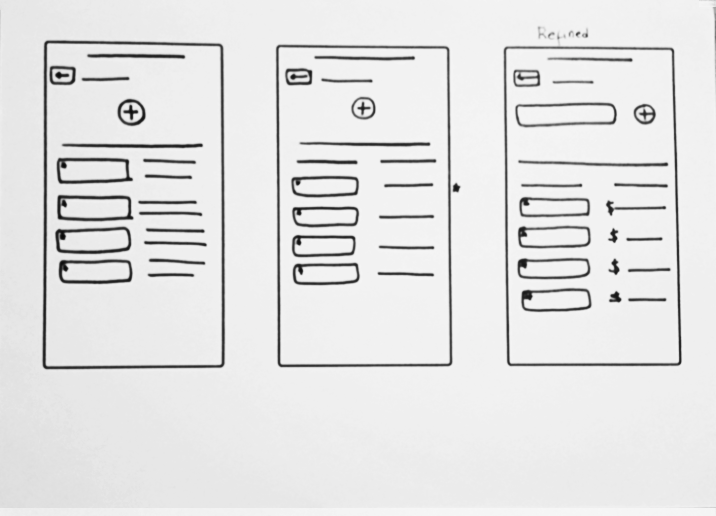 Refined
$
$
$
$